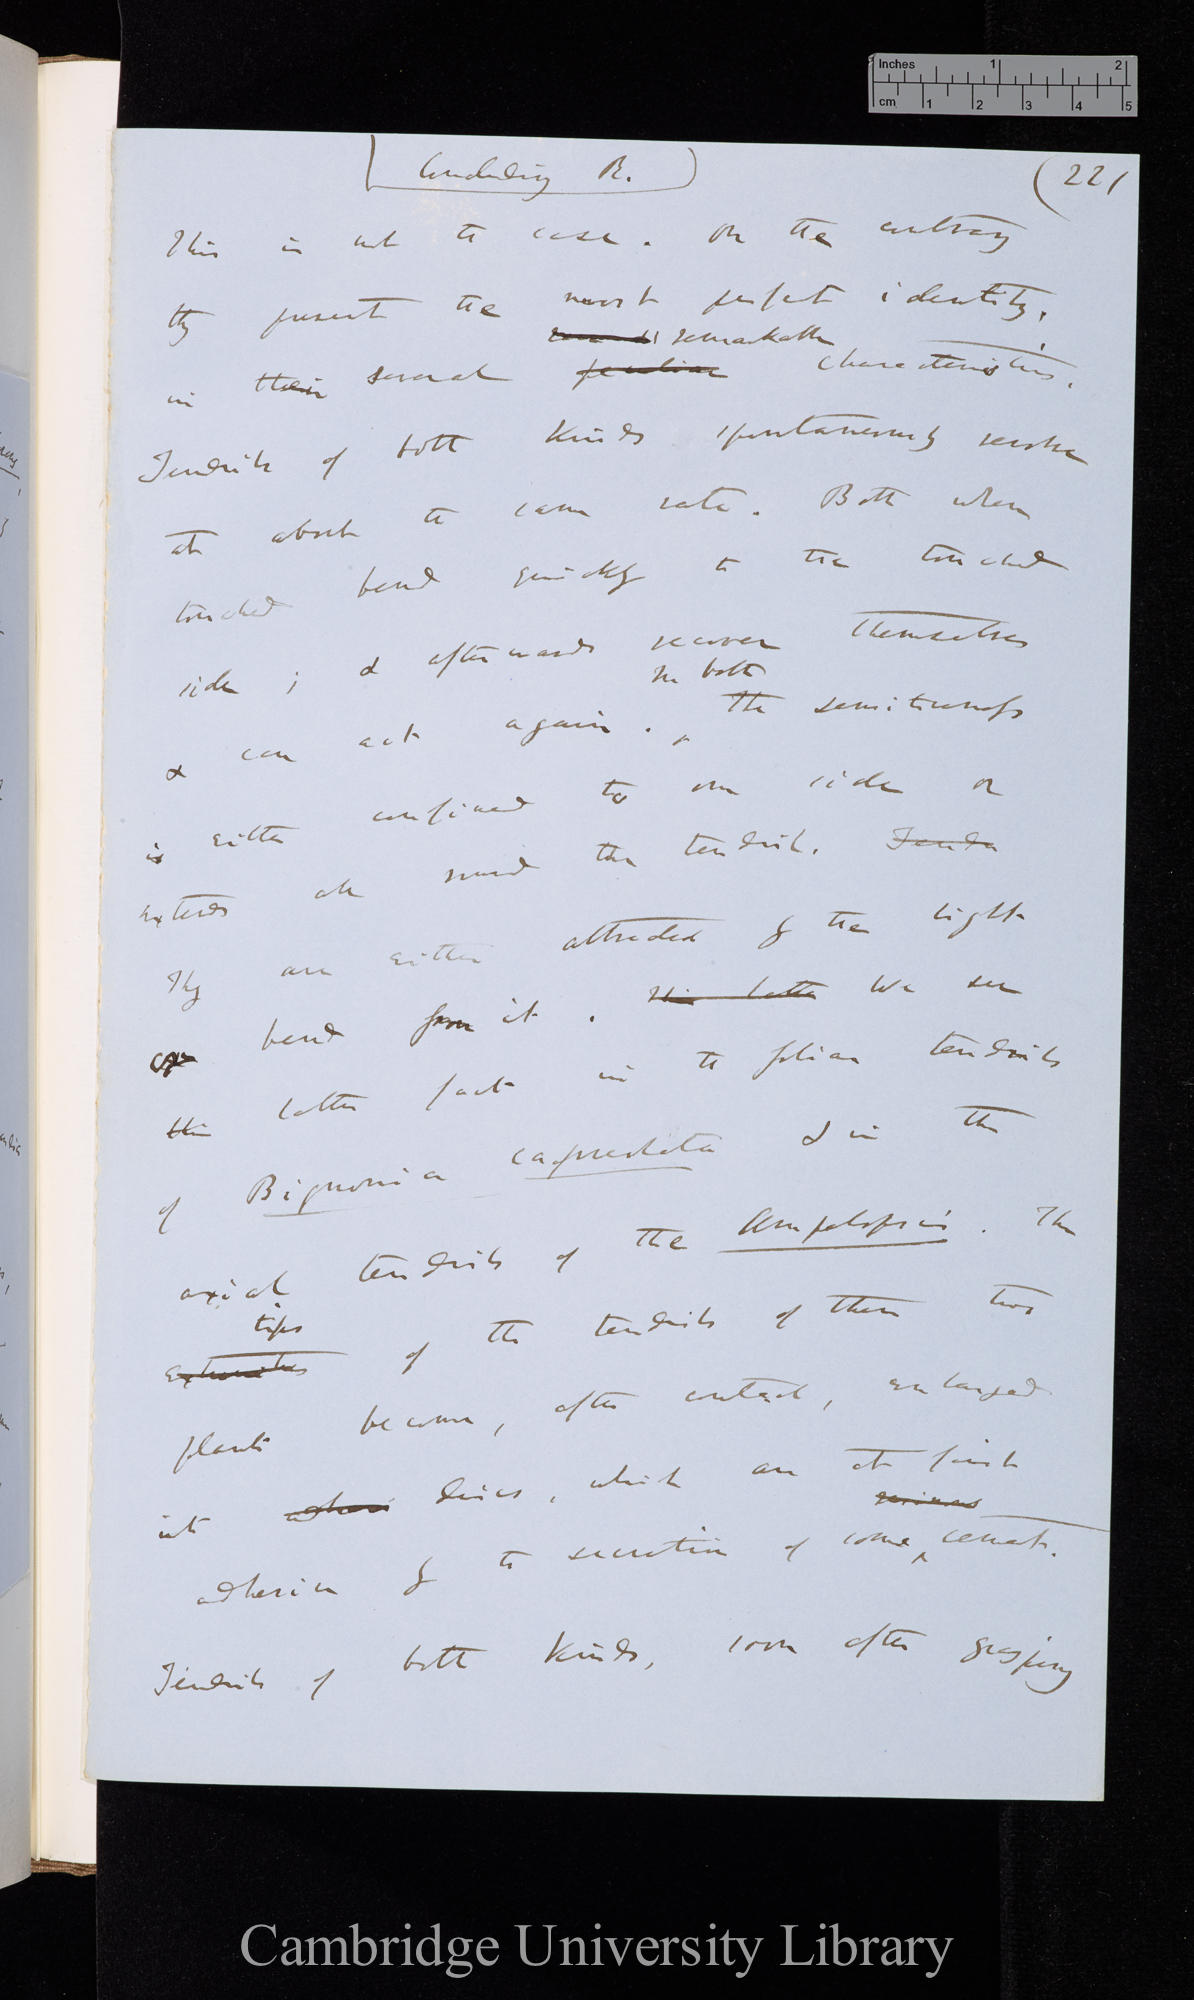 Inches 1 2
cm 1 2 3 4 5
Concluding R. (221
This is not the case. On the contrary
they present the most perfect identity,
remarkable
in their several peculiar characteristics.
Tendrils of both kinds spontaneously revolve
at about the same rate. Both when
touched bend quickly to the touched
side; & afterwards recover themselves
In both
& can act again. The sensitiveness
is either confined to one side or
extends all round the tendril. Tendr
They are either attracted by the light
or bend from it. This latter We see
this latter fact in the foliar tendrils
of Bignonia capreolata & in the
axial tendrils of the Ampelopsis. The
tips
extremities of the tendrils of these two
plants become, after contact, enlarged
into adhesi discs, which are at first
adhesive by the secretion of some cement.
Tendrils of both kinds, soon after grasping
Cambridge University Library